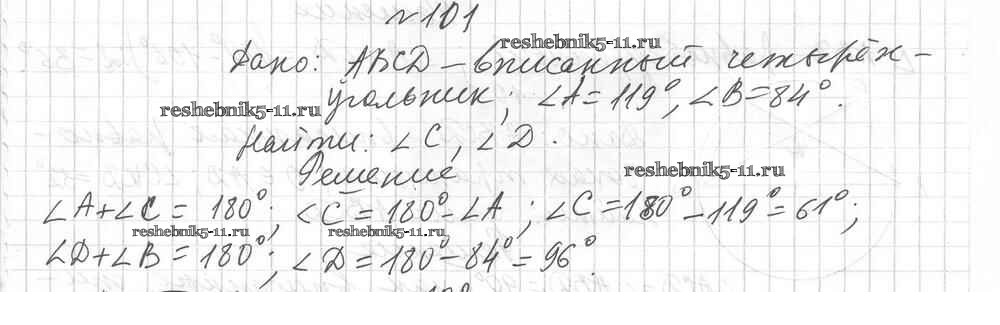 №101
reshebnik5-11.ru
Дано: ABCD – вписанный четырёх-
угольник; ∠A = 119°, ∠B = 84°.
reshebnik5-11.ru
Найти: ∠C, ∠D.
Решение
reshebnik5-11.ru
∠A + ∠C = 180°; ∠C = 180° - ∠A; ∠C = 180° - 119° = 61°;
reshebnik5-11.ru reshebnik5-11.ru
∠D + ∠B = 180°; ∠D = 180° - 84° = 96°.